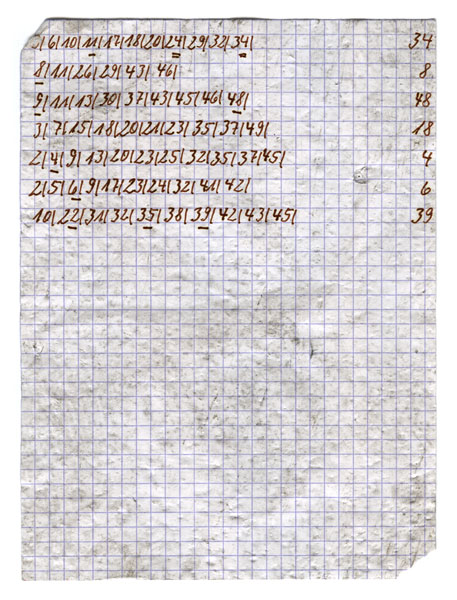 3|6|10|11|17|18|20|24|29|32|34| 34
8|11|26|29|43|46| 8
9|11|13|30|37|43|45|46|48| 48
3|7|15|18|20|21|23|35|37|49| 18
2|4|9|13|20|23|25|32|35|37|45| 4
2|5|6|9|17|23|24|32|41|42| 6
10|22|31|32|35|38|39|42|43|45| 39